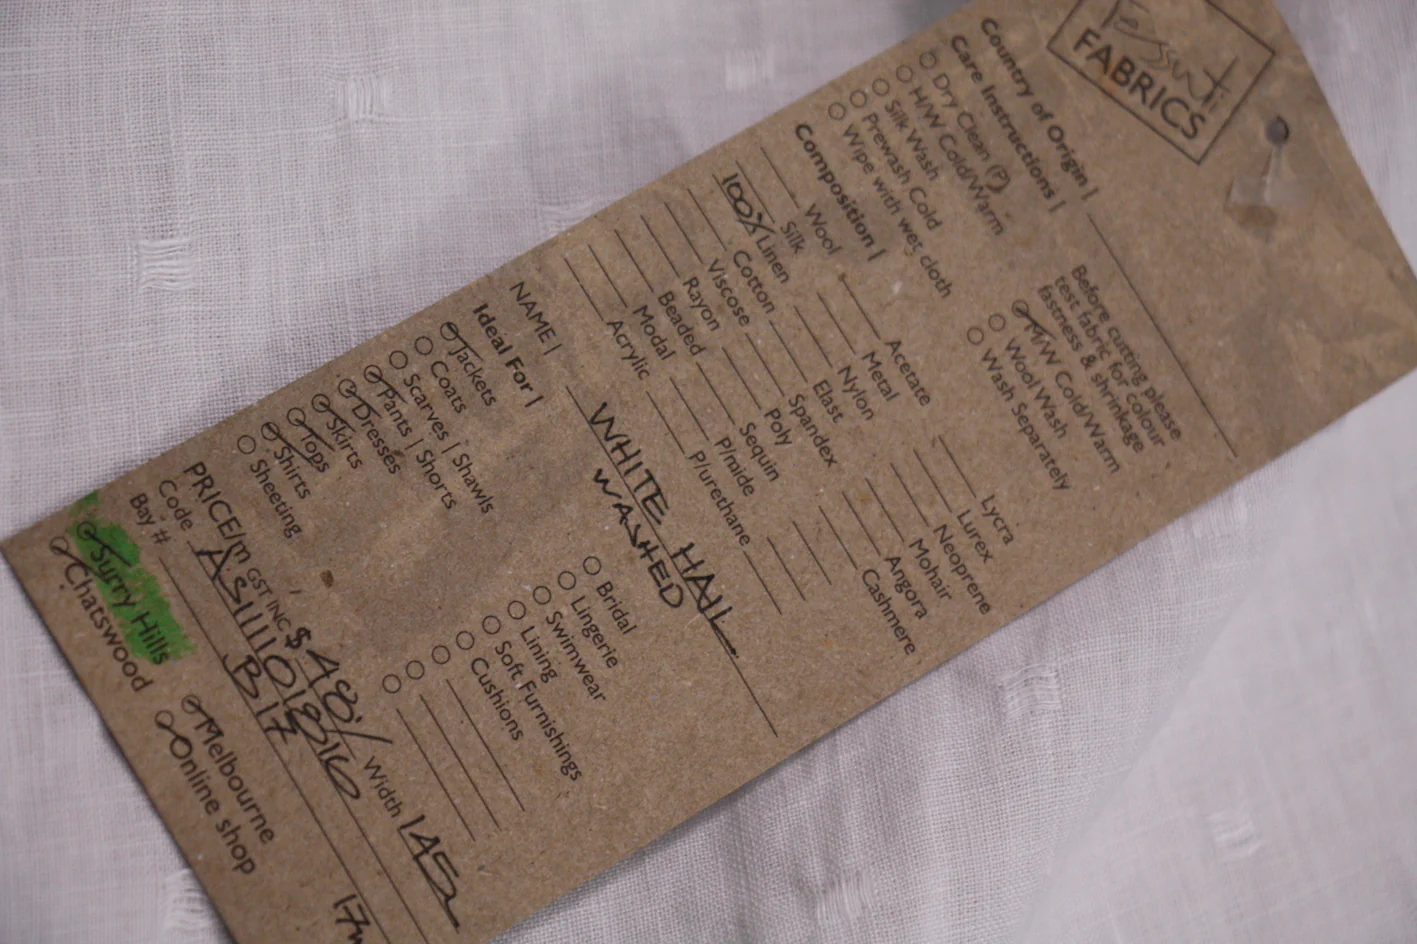 Tessuti
FABRICS
Country of Origin |
Care Instructions |
Dry Clean (P)
H/W Cold/Warm
Silk Wash
Prewash Cold
Wipe with wet cloth
Before cutting please
test fabric for colour
fastness & shrinkage
M/W Cold/Warm
Wool Wash
Wash Separately
Composition |
Wool
Silk
100% Linen
Cotton
Viscose
Rayon
Beaded
Modal
Acrylic
Acetate
Metal
Nylon
Elast
Spandex
Poly
Sequin
P/mide
P/urethane
Lycra
Lurex
Neoprene
Mohair
Angora
Cashmere
NAME | WHITE HAIL
WASHED
Ideal For |
Jackets
Coats
Scarves | Shawls
Pants | Shorts
Dresses
Skirts
Tops
Shirts
Sheeting
Bridal
Lingerie
Swimwear
Lining
Soft Furnishings
Cushions
PRICE/m GST INC $48./ Width 145
Code
Bay # B17
Surry Hills
Chatswood
Melbourne
Online shop